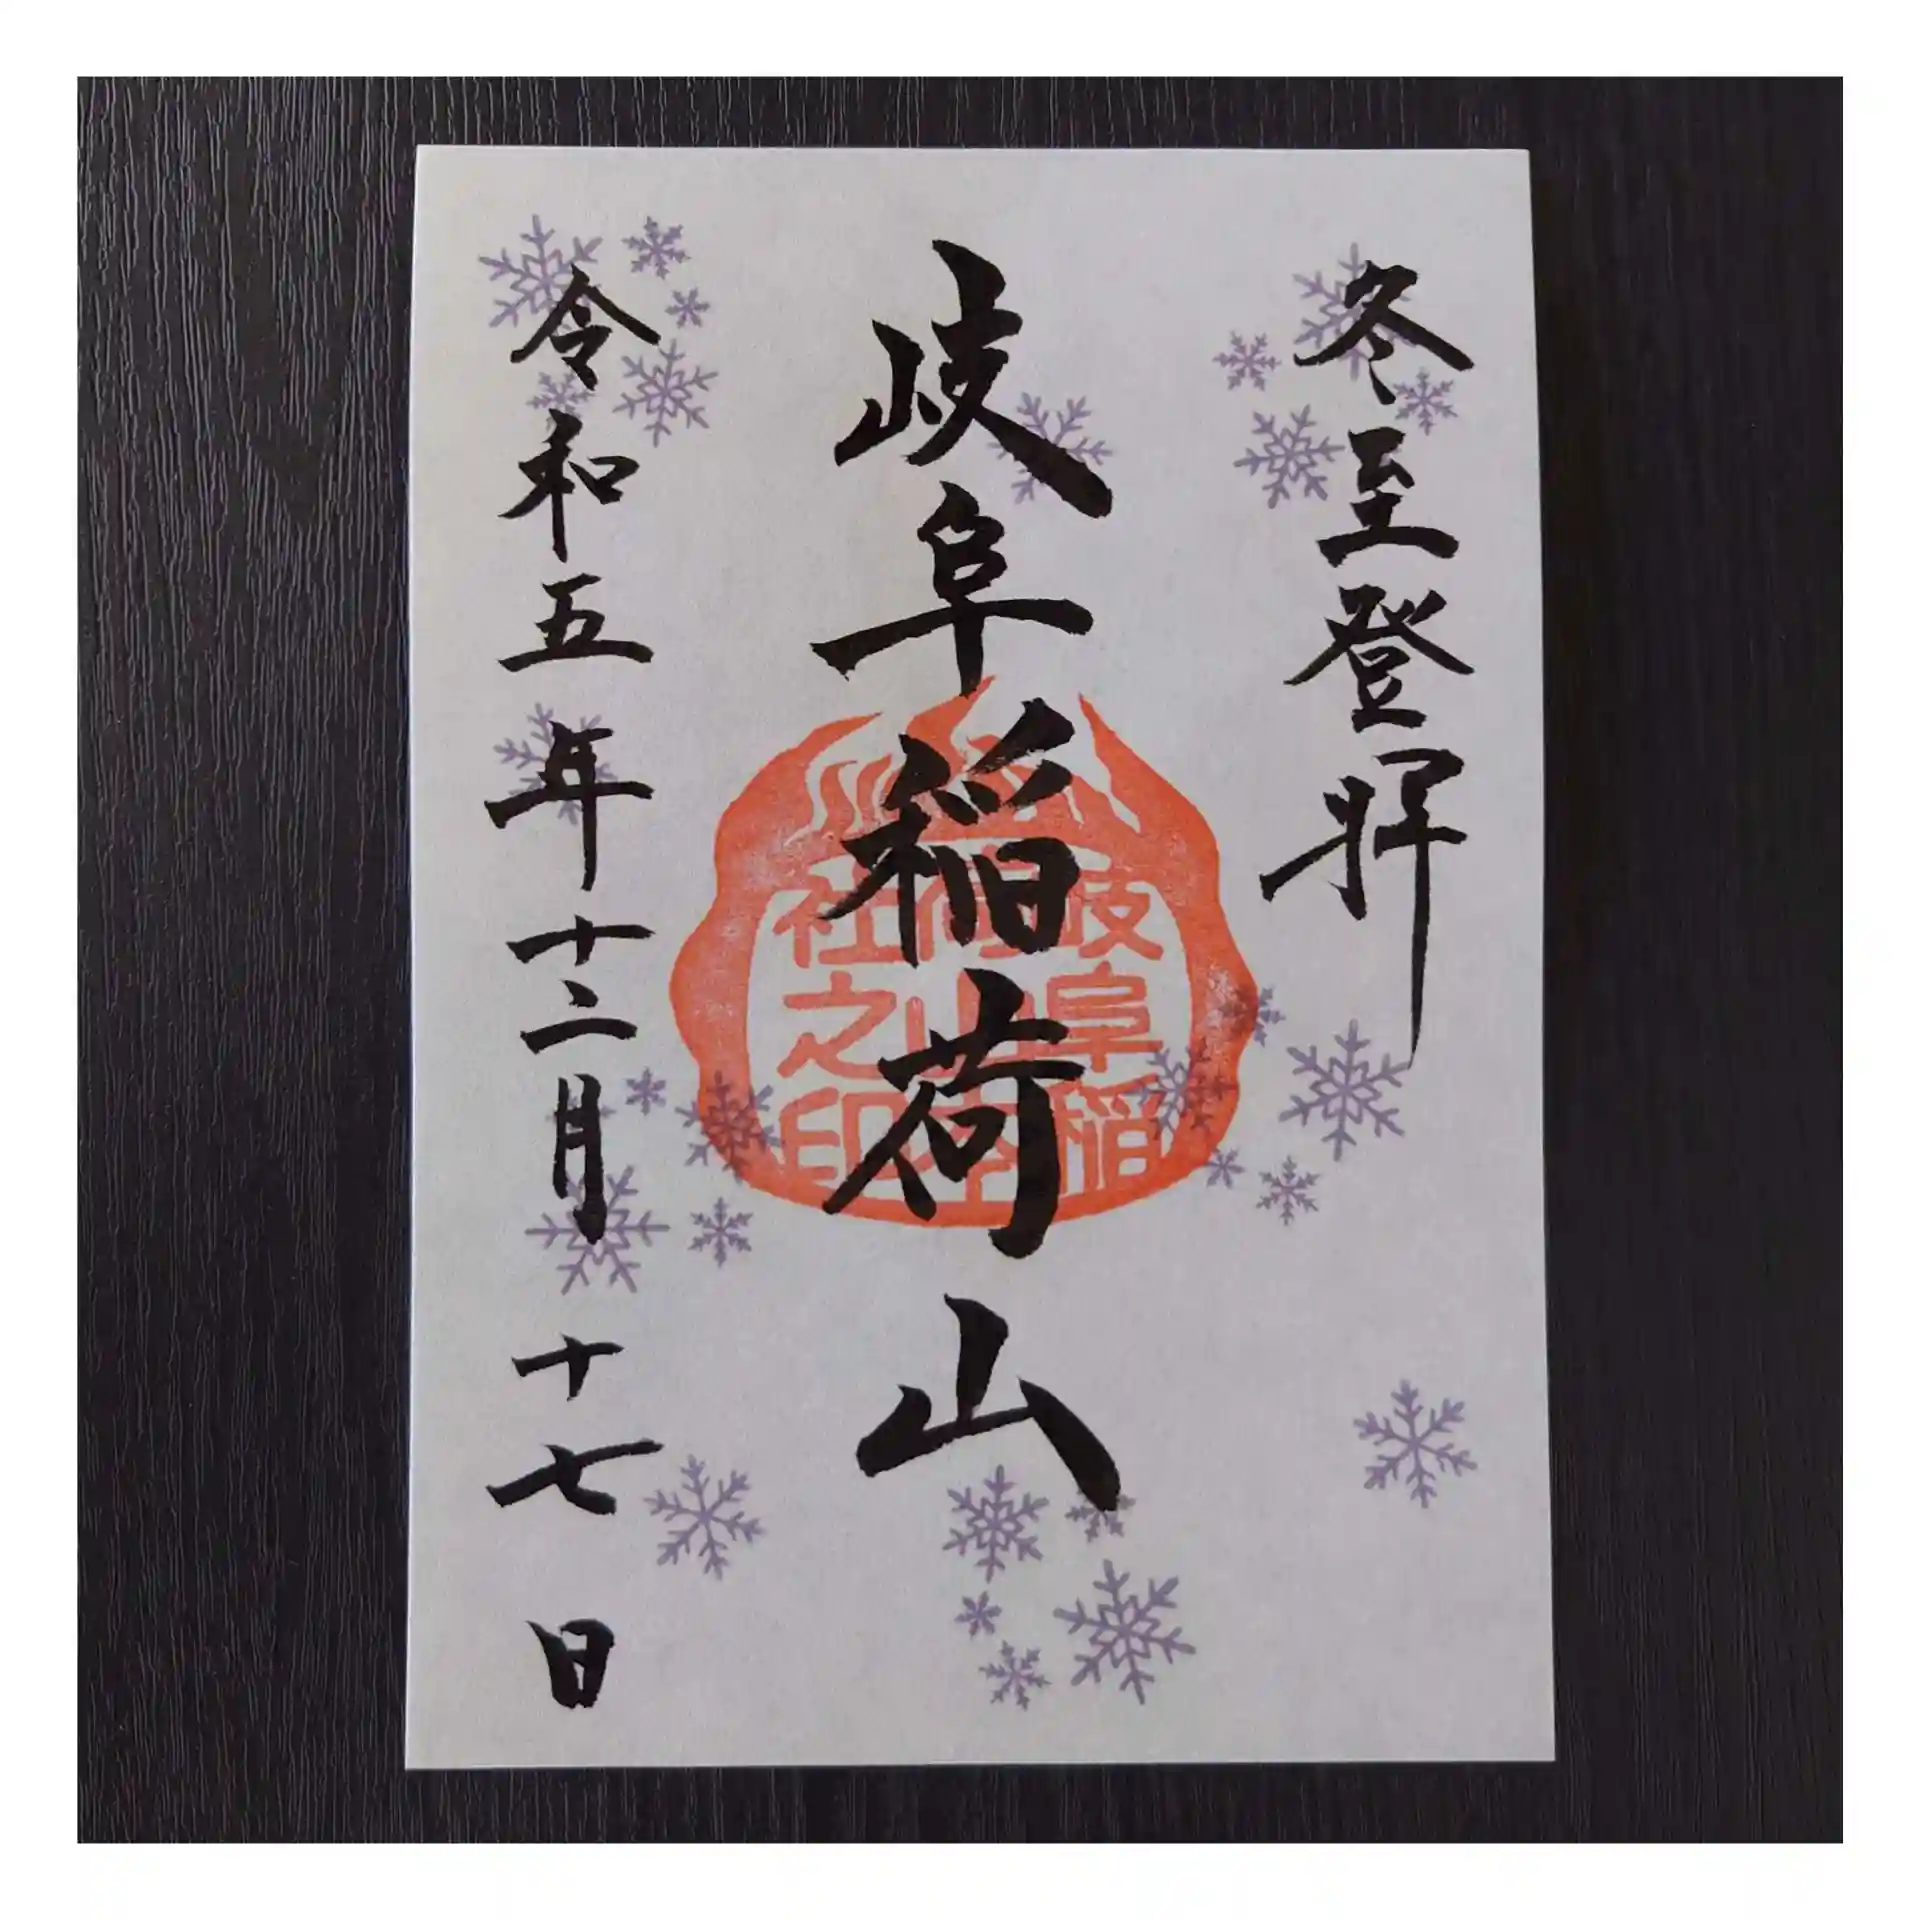 冬至登拝
岐阜稲荷山
令和五年十二月十七日
岐阜稲
荷山本
社之印